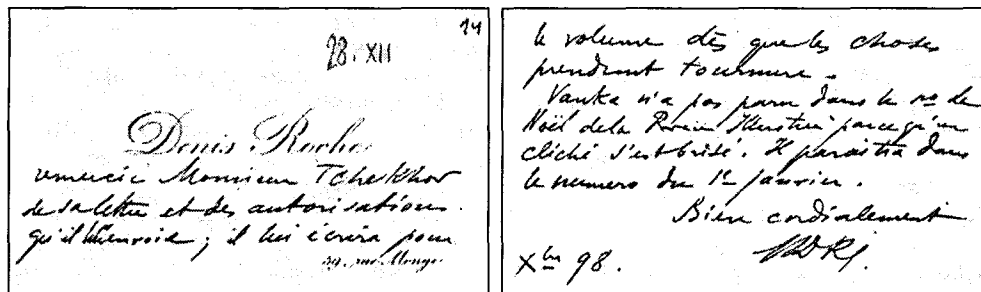 14
28. XII
Denis Roche
remercie Monsieur Tchekhov
de sa lettre et des autorisations
qu'il lui envoie ; il lui écrira pour
39, rue Monge
le volume dès que les choses
prendront tournure.
Vanka n'a pas paru dans le no de
Noël de la Revue Illustrée parce qu'un
cliché s'est brisé. Il paraîtra dans
le numero du 1er janvier.
Bien cordialement
Xbre 98.